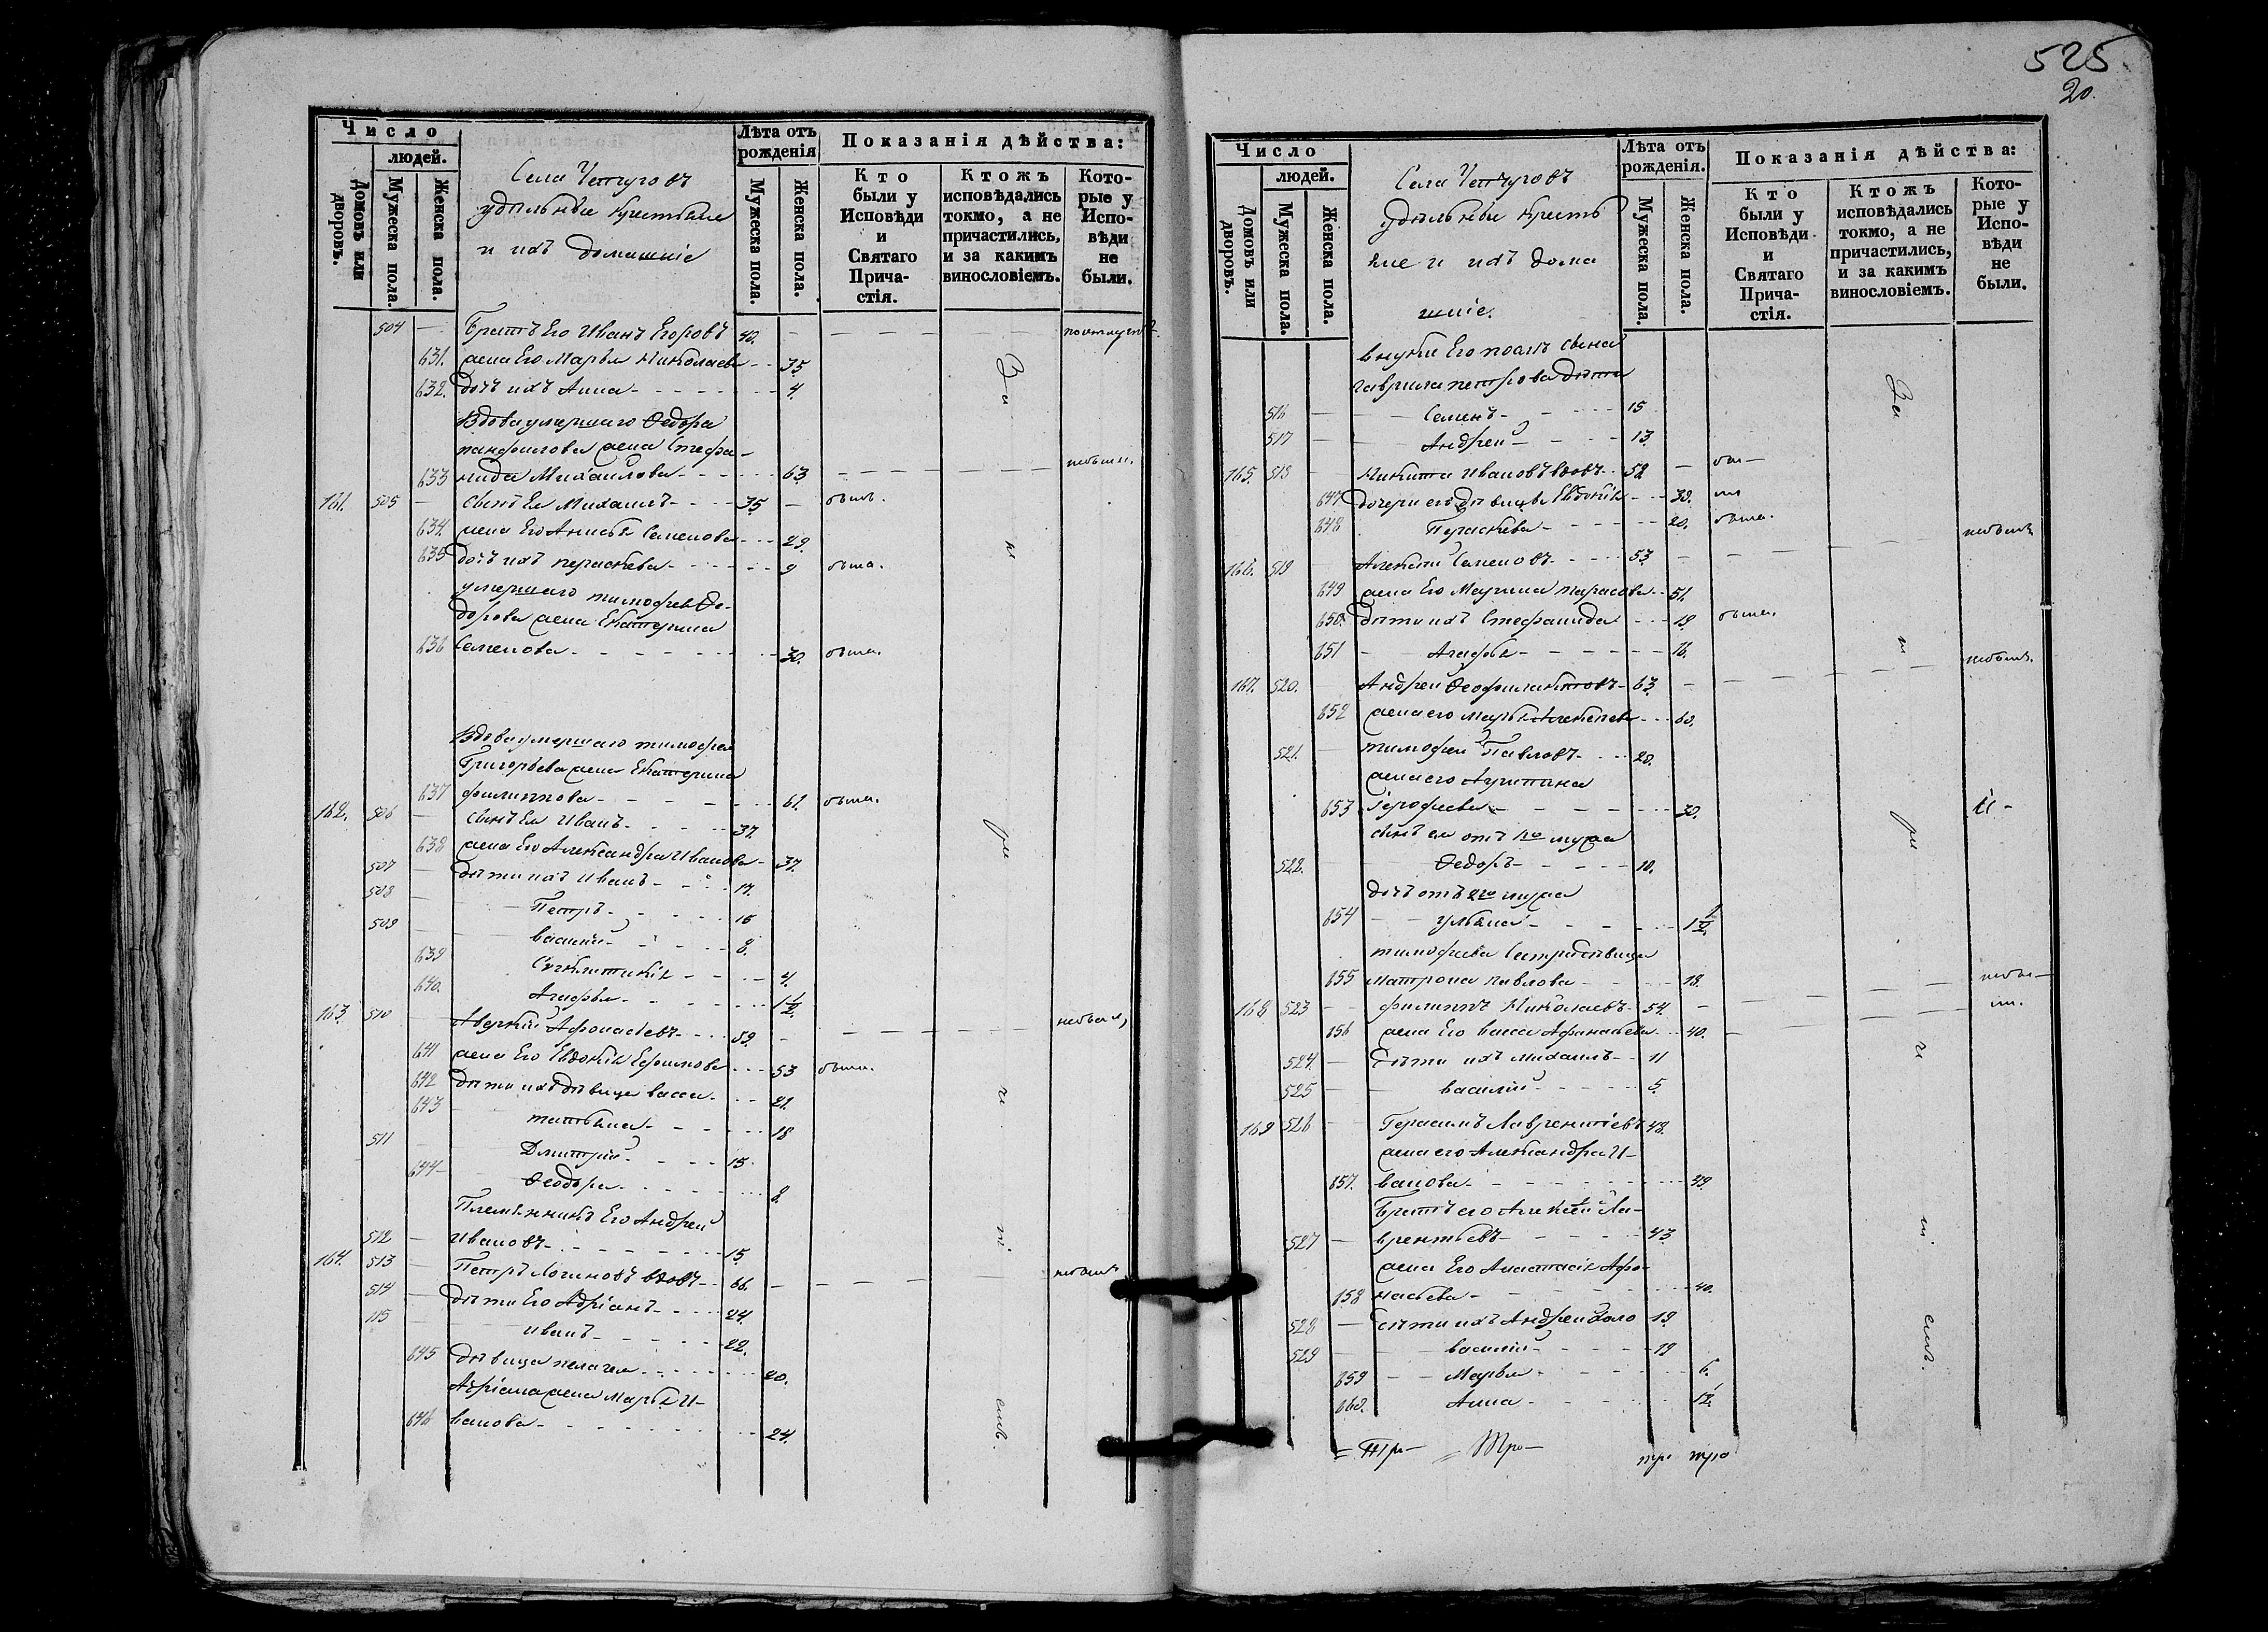 525
20.
Число
людей.
Домовъ или дворовъ.
Мужеска пола.
Женска пола.
Села Чепчуговъ
удѣльные крестьяне
и ихъ домашніе
Лѣта отъ рожденія
Мужеска пола.
Женска пола.
Показанія дѣйства:
Кто были у Исповѣди и Святаго Прича-стія.
Ктожъ исповѣдались токмо, а не причастились, и за какимъ винословіемъ.
Кото-рые у Испо-вѣди не были.
504 — Братъ Его Иванъ Егоровъ 40.
631. жена Его Марья Николаева 35.
632. дочь ихъ Анна 4.
Вдова умершаго Ѳедора
панфилова жена Стефа-
633 нида Михайлова 63 небыли.
161. 505 — сынъ Ея Михаилъ 35. — былъ.
634. жена Его Анисья Семенова 29.
635 дочь ихъ параскева 9 была.
умершаго тимофея Ѳе-
дорова жена Екатерина
636 Семенова 30. была.
Вдова умершаго тимофея
Григорьева жена Екатерина
637 филиппова 61. была.
162. 506 — сынъ Ея Иванъ 37.
638 жена Его Александра Иванова 37.
507 — дѣти ихъ Иванъ 17.
508 — Петръ 15
509 — василій 8.
639 Сигклитикія 4.
640. Агафья 1 1/2.
163. 510 — Аверкій Афонасіевъ 59. — небыл,
641 жена Его Евдокія Ефимова 53 была.
642 дѣти ихъ дѣвица васса 21.
643 татьяна 18
511 — Дмитрій 15.
644 — Ѳеодора 8.
Племянникъ Его Андрей
512 — Ивановъ 15.
164. 513 — Петръ Логиновъ вдовъ 66. — небылъ
514 — дѣти Его Адріанъ 24.
515 — иванъ 22.
645 дѣвица пелагея 20.
Адріана жена Марья И-
646 ванова 24.
За н ра ч т слв.
Число
людей.
Домовъ или дворовъ.
Мужеска пола.
Женска пола.
Села Чепчуговъ
удѣльные кресть
яне и ихъ дома
шніе.
Лѣта отъ рожденія.
Мужеска пола.
Женска пола.
Показанія дѣйства:
Кто были у Исповѣди и Святаго Прича-стія.
Ктожъ исповѣдались токмо, а не причастились, и за какимъ винословіемъ.
Кото-рые у Испо-вѣди не были.
внуки Его
гаврила петрова дѣти
516 — Семенъ 15
517 — Андрей 13.
165. 518 — Никита Ивановъ вдовъ 52 — бы—
647 дочери его дѣвицы Евдокія 30. ли
648 Параскева 20. была.
166. 519 Алексѣй Семеновъ 53 — небылъ
649 жена Его Марина тарасова 51.
650. дѣти ихъ Стефанида 19 была.
651 — Агафья 16.
167. 520. Андрей Ѳеофилактовъ 63 — небылъ.
652 жена его марья Алексѣева 60.
521. — тимофей Павловъ 20.
жена его Агрипина
653 Ерофеева 30.
сынъ ея отъ 1го мужа
522. Ѳедоръ 10.
дочь отъ 2го мужа
654 — ульяна 1 1/2.
тимофеева Сестра дѣвица
655 матрона павлова 18.
168 523 — филиппъ Николаевъ 54. — небы—
656 жена Его васса Афанасьева 40. — ли.
524. — Дѣти ихъ михаилъ 11
525 — василій 5.
169 526 — Герасимъ Лаврентіевъ 48.
жена его Александра И-
657. ванова 49.
Братъ его Алексѣй Ла-
527 — врентьевъ 43
жена Его Анастасія Афо-
658 насьева 40.
528 — дѣти ихъ Андрей 19.
529 — василій 19
659 — Марья 6.
660. Анна 12.